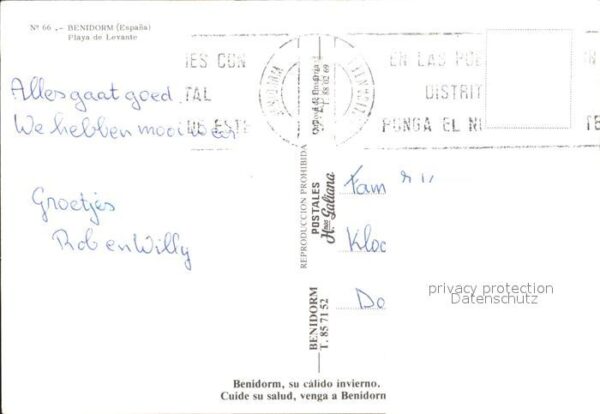 Nº 66 .- BENIDORM (España)
Playa de Levante
Alles gaat goed.
We hebben mooi weer
Groetjes
Rob en Willy
IES CON
TAL
DE ESTE
BENIDORM
EN LAS
DISTRIT
PONGA EL
REPRODUCCION PROHIBIDA
POSTALES
Hnos Galiana
BENIDORM
T. 85 71 52
Fam
Kloc
Do
privacy protection
Datenschutz
Benidorm, su cálido invierno.
Cuide su salud, venga a Benidorm